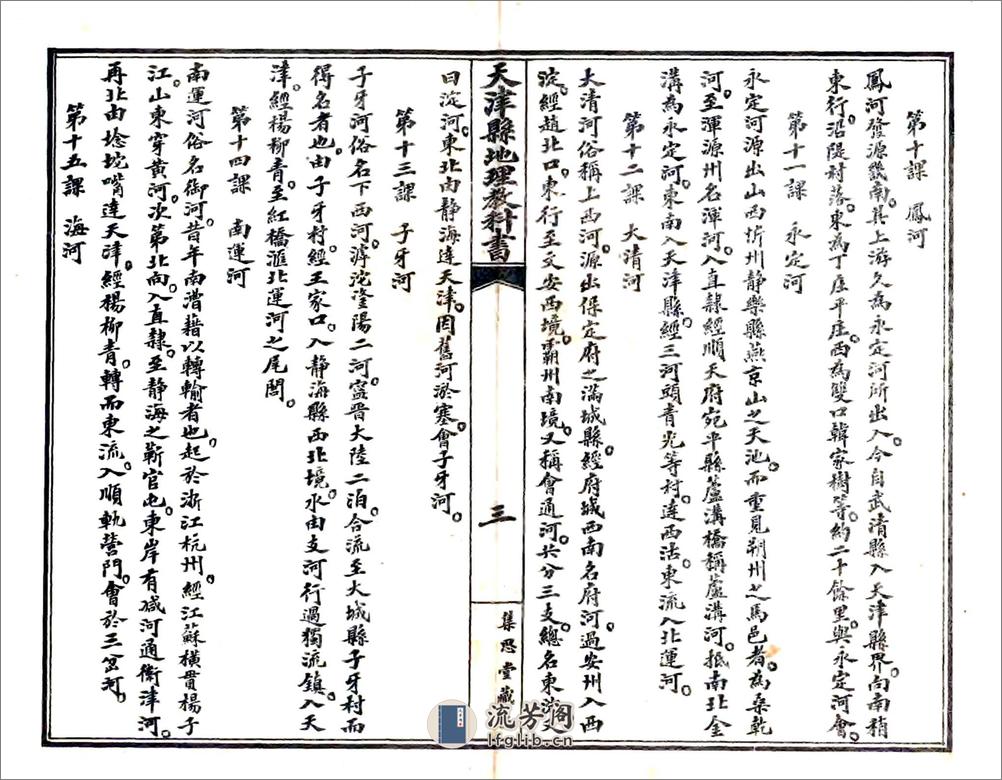 第十課　鳳河
鳳河發源畿南。其上游久為永定河所出入。今自武清縣入天津縣界。向南稍
東行。沿隄村落。東為丁庄平庄。西為雙口韓家樹等。約二十餘里。與永定河會。
第十一課　永定河
永定河源出山西忻州靜樂縣燕京山之天池。而重見朔州之馬邑者。為桑乾
河。至渾源州名渾河。入直隸經順天府宛平縣蘆溝橋。稱蘆溝河。抵南北金
溝為永定河。東南入天津縣。經三河頭青光等村。達西沽。東流入北運河。
第十二課　大清河
大清河俗稱上西河。源出保定府之滿城縣。經府城西南名府河。過安州入西
淀。經趙北口。東行至文安西境。霸州南境。又稱會通河。共分三支。總名東淀。又
曰淀河。東北由靜海達天津。因舊河淤塞。會子牙河。
第十三課　子牙河
子牙河俗名下西河。滹沱滏陽二河。寧晉大陸二泊。合流至大城縣子牙村而
得名者也。由子牙村。經王家口。入靜海縣西北境。水由支河行過獨流鎮。入天
津。經楊柳青。至紅橋滙北運河之尾閭。
第十四課　南運河
南運河俗名御河。昔年南漕藉以轉輸者也。起於浙江杭州。經江蘇橫貫楊子
江。山東穿黃河。次第北向。入直隸。至靜海之靳官屯。東岸有減河通衛津河。
再北由埝坨嘴達天津。經楊柳青。轉而東流。入順軌營門。會於三岔河。
第十五課　海河
天津縣地理教科書
三
集思堂藏
流芳阁
lfglib.cn